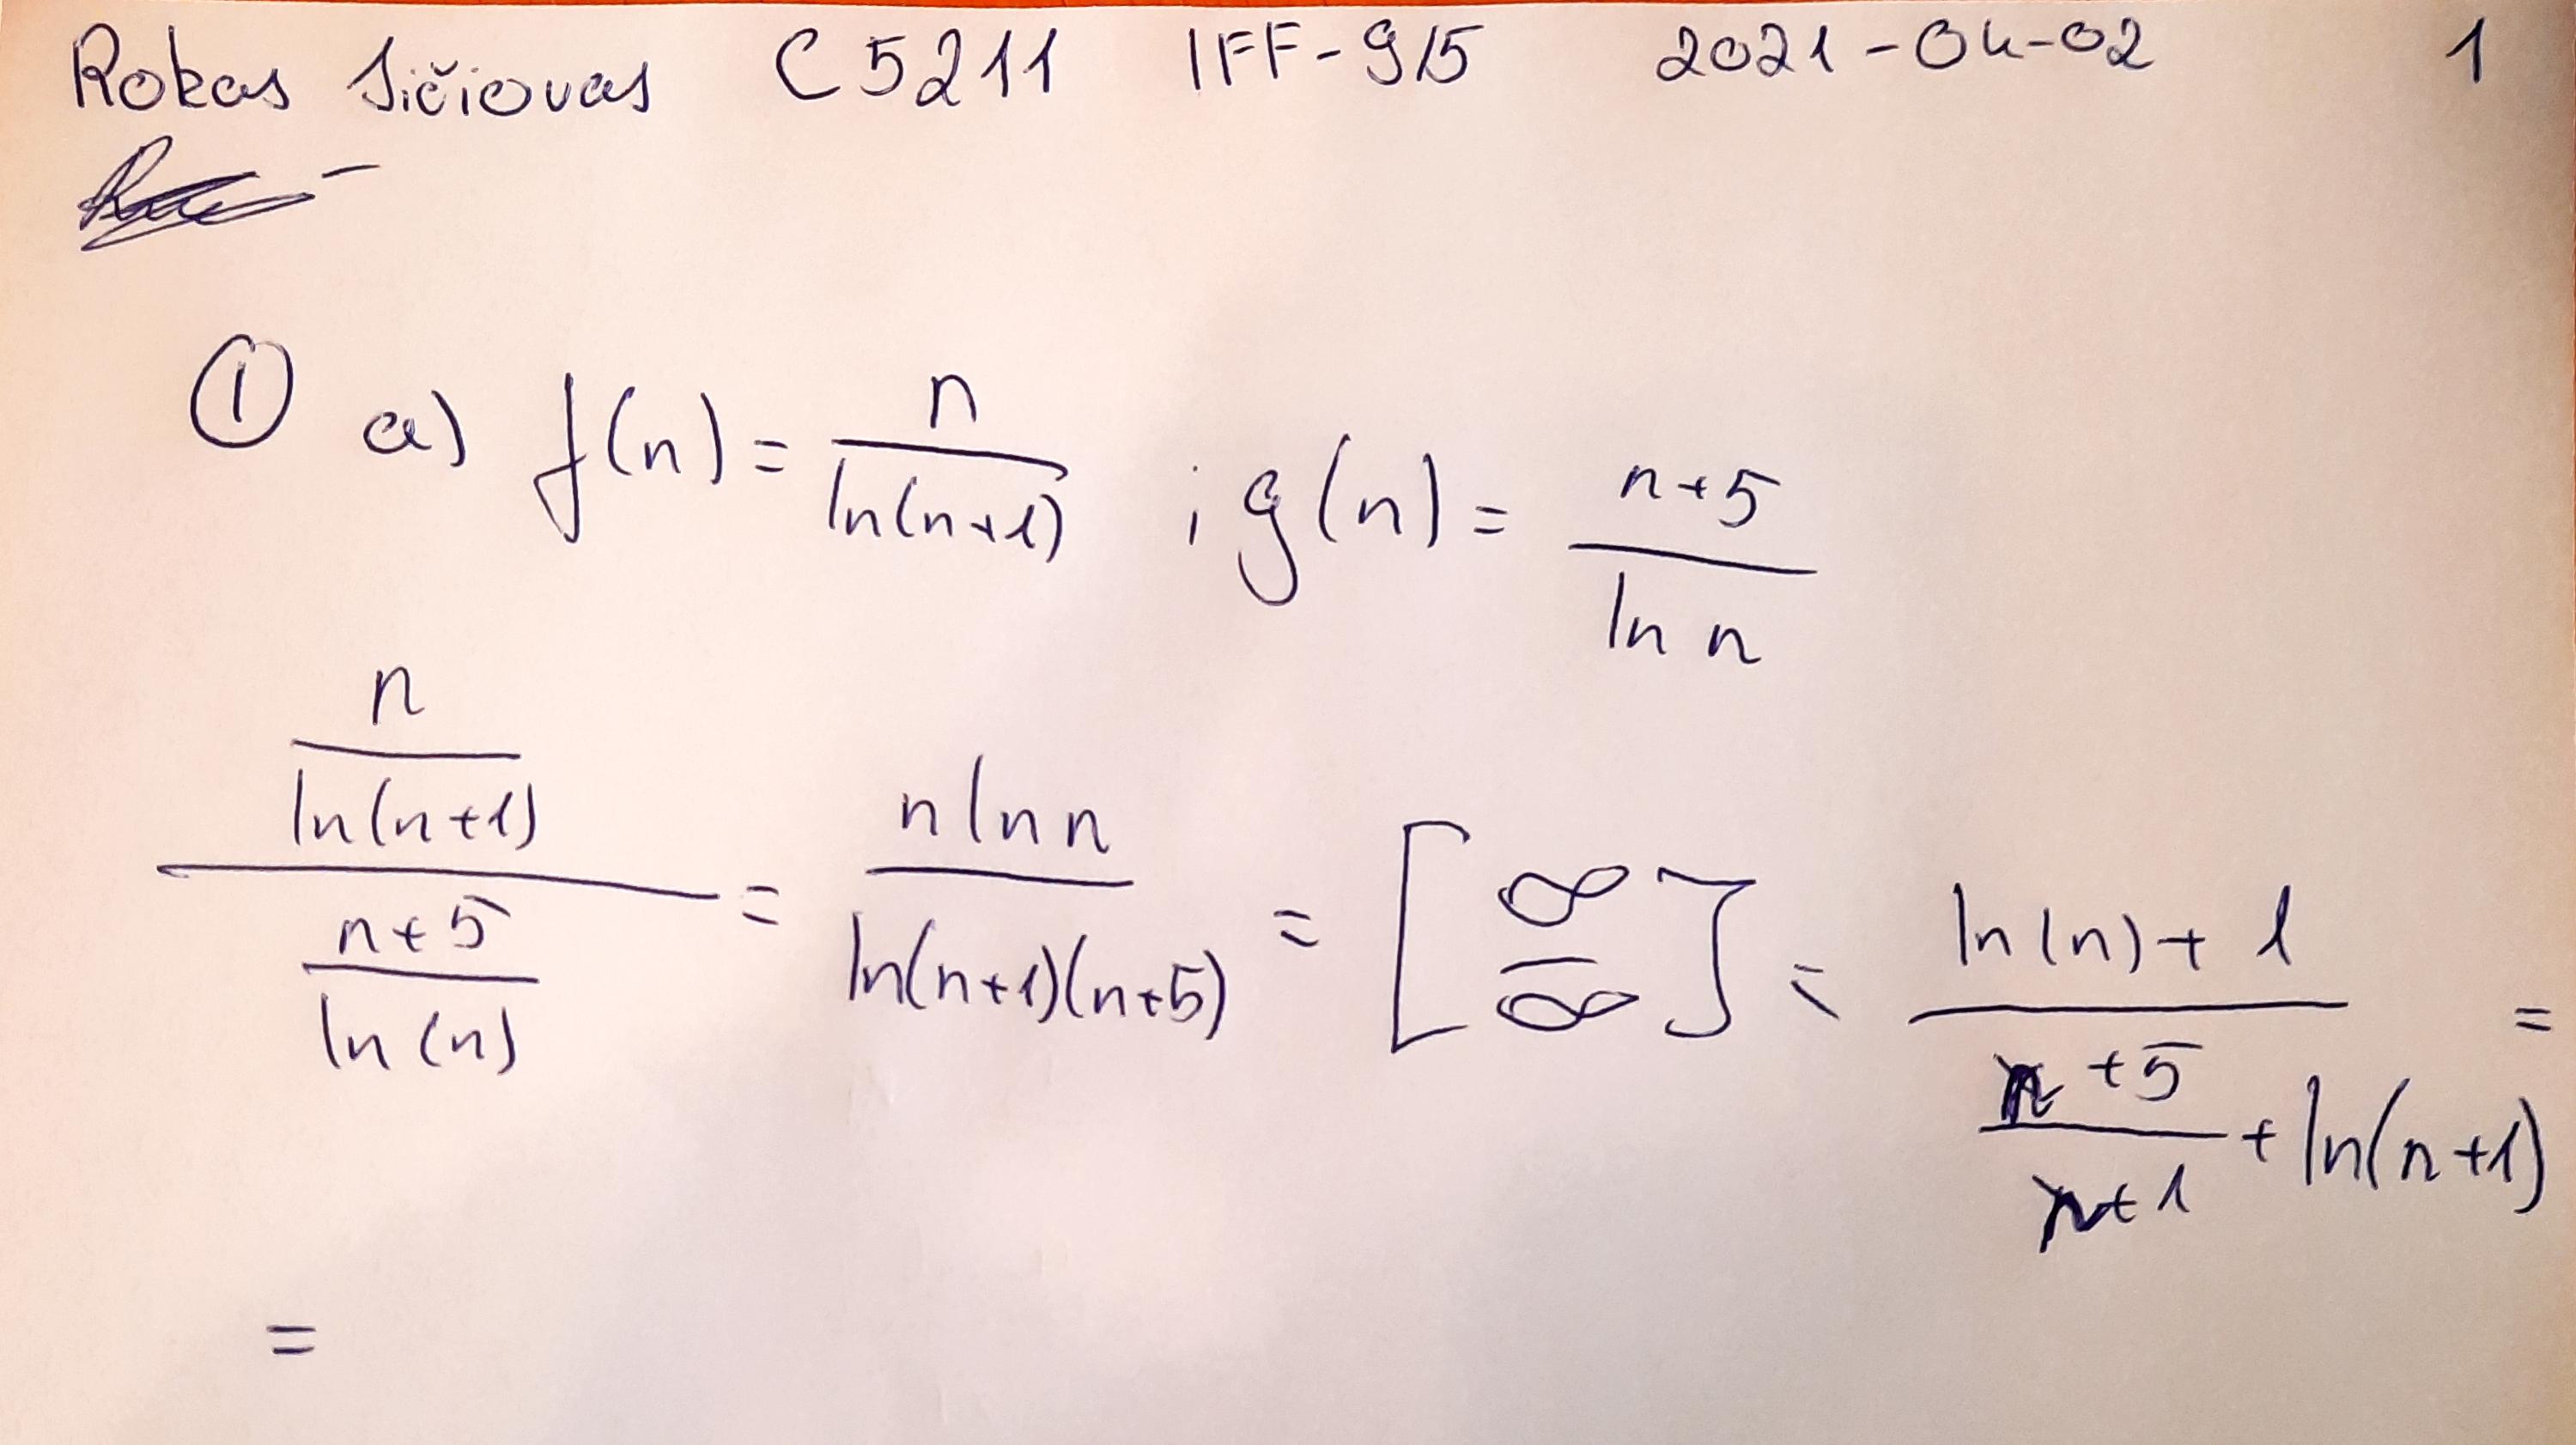 Rokas Jičiovas C5211 IFF-9/5 2021-04-02 1
① a) f(n) = n / ln(n+1) ; g(n) = n+5 / ln n
(n / ln(n+1)) / (n+5 / ln(n)) = n ln n / ln(n+1)(n+5) = [∞ / ∞] = ln(n)+1 / (n+5 / n+1 + ln(n+1)) =
=